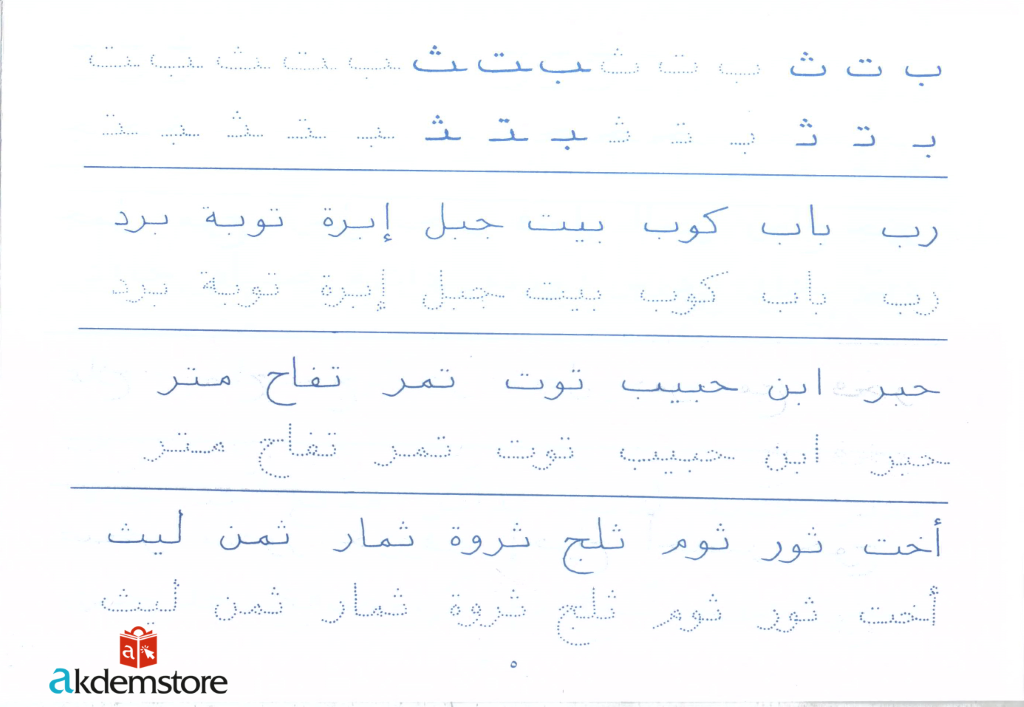 ب ت ث ب ت ث ـب ـت ـث ـب ـت ـث ـب ـت
بـ تـ ثـ بـ تـ ثـ ـبـ ـتـ ـثـ ـبـ ـتـ ـثـ ـبـ ـتـ
رب باب كوب بيت جبل إبرة توبة برد
رب باب كوب بيت جبل إبرة توبة برد
حبر ابن حبيب توت تمر تفاح متر
حبر ابن حبيب توت تمر تفاح متر
أخت ثور ثوم ثلج ثروة ثمار ثمن ليث
أخت ثور ثوم ثلج ثروة ثمار ثمن ليث
٥
a
akdemstore